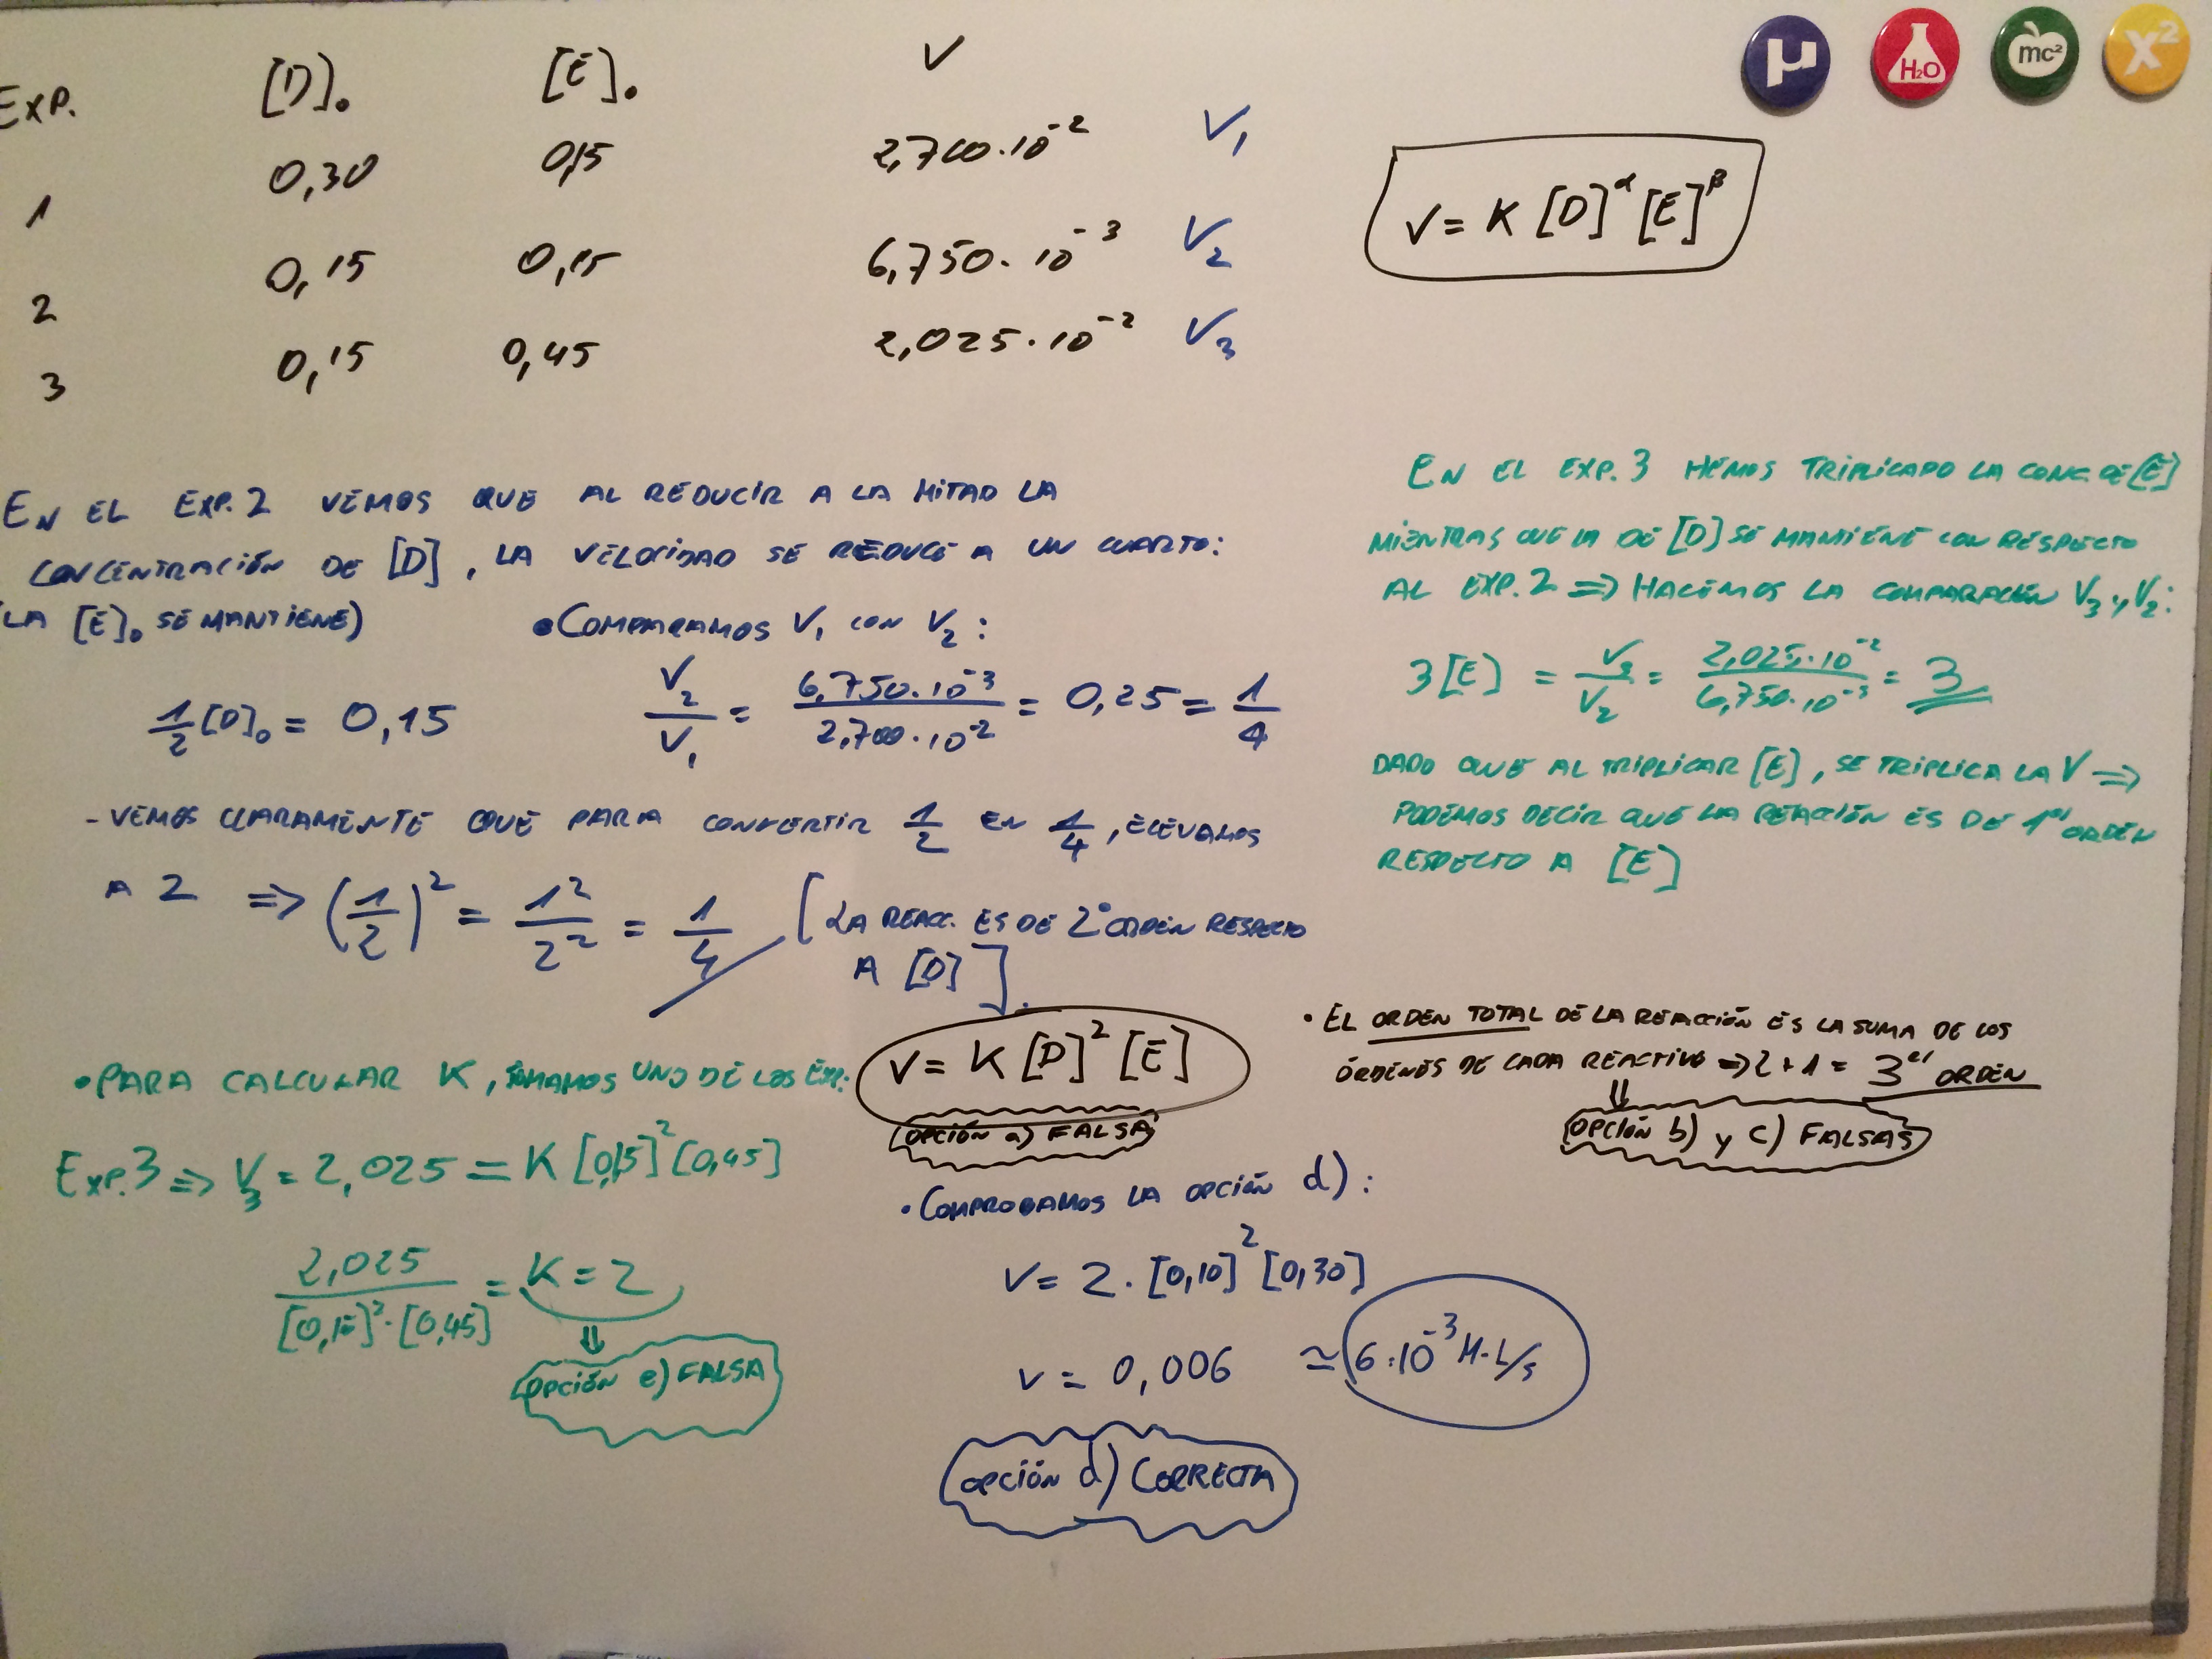 EXP. [D]₀ [E]₀ V
1 0,30 0,15 2,700·10⁻² V₁
2 0,15 0,15 6,750·10⁻³ V₂
3 0,15 0,45 2,025·10⁻² V₃
μ H₂O mc² x²
V = K [D]^α [E]^β
EN EL EXP. 2 VEMOS QUE AL REDUCIR A LA MITAD LA
CONCENTRACIÓN DE [D], LA VELOCIDAD SE REDUCE A UN CUARTO:
(LA [E]₀ SE MANTIENE)
• COMPARAMOS V₁ CON V₂:
1/2 [D]₀ = 0,15
V₂/V₁ = 6,750·10⁻³/2,700·10⁻² = 0,25 = 1/4
- VEMOS CLARAMENTE QUE PARA CONVERTIR 1/2 EN 1/4, ELEVAMOS
A 2 => (1/2)² = 1²/2² = 1/4 [LA REACC. ES DE 2º ORDEN RESPECTO
A [D]].
EN EL EXP. 3 HEMOS TRIPLICADO LA CONC. DE [E]
MIENTRAS QUE LA DE [D] SE MANTIENE CON RESPECTO
AL EXP. 2 => HACEMOS LA COMPARACIÓN V₃ y V₂:
3[E] = V₃/V₂ = 2,025·10⁻²/6,750·10⁻³ = 3
DADO QUE AL TRIPLICAR [E], SE TRIPLICA LA V =>
PODEMOS DECIR QUE LA REACCIÓN ES DE 1er ORDEN
RESPECTO A [E]
V = K [D]² [E]
(OPCIÓN a) FALSA
• EL ORDEN TOTAL DE LA REACCIÓN ES LA SUMA DE LOS
ÓRDENES DE CADA REACTIVO => 2+1 = 3er ORDEN
⇓
OPCIÓN b) y c) FALSAS
• PARA CALCULAR K, TOMAMOS UNO DE LOS EXP.:
EXP. 3 => V₃ = 2,025 = K [0,15]² [0,45]
2,025/[0,15]²·[0,45] = K = 2
⇓
OPCIÓN e) FALSA
• COMPROBAMOS LA OPCIÓN d):
V = 2 · [0,10]² [0,30]
V = 0,006 ≃ 6·10⁻³ M·L/s
OPCIÓN d) CORRECTA